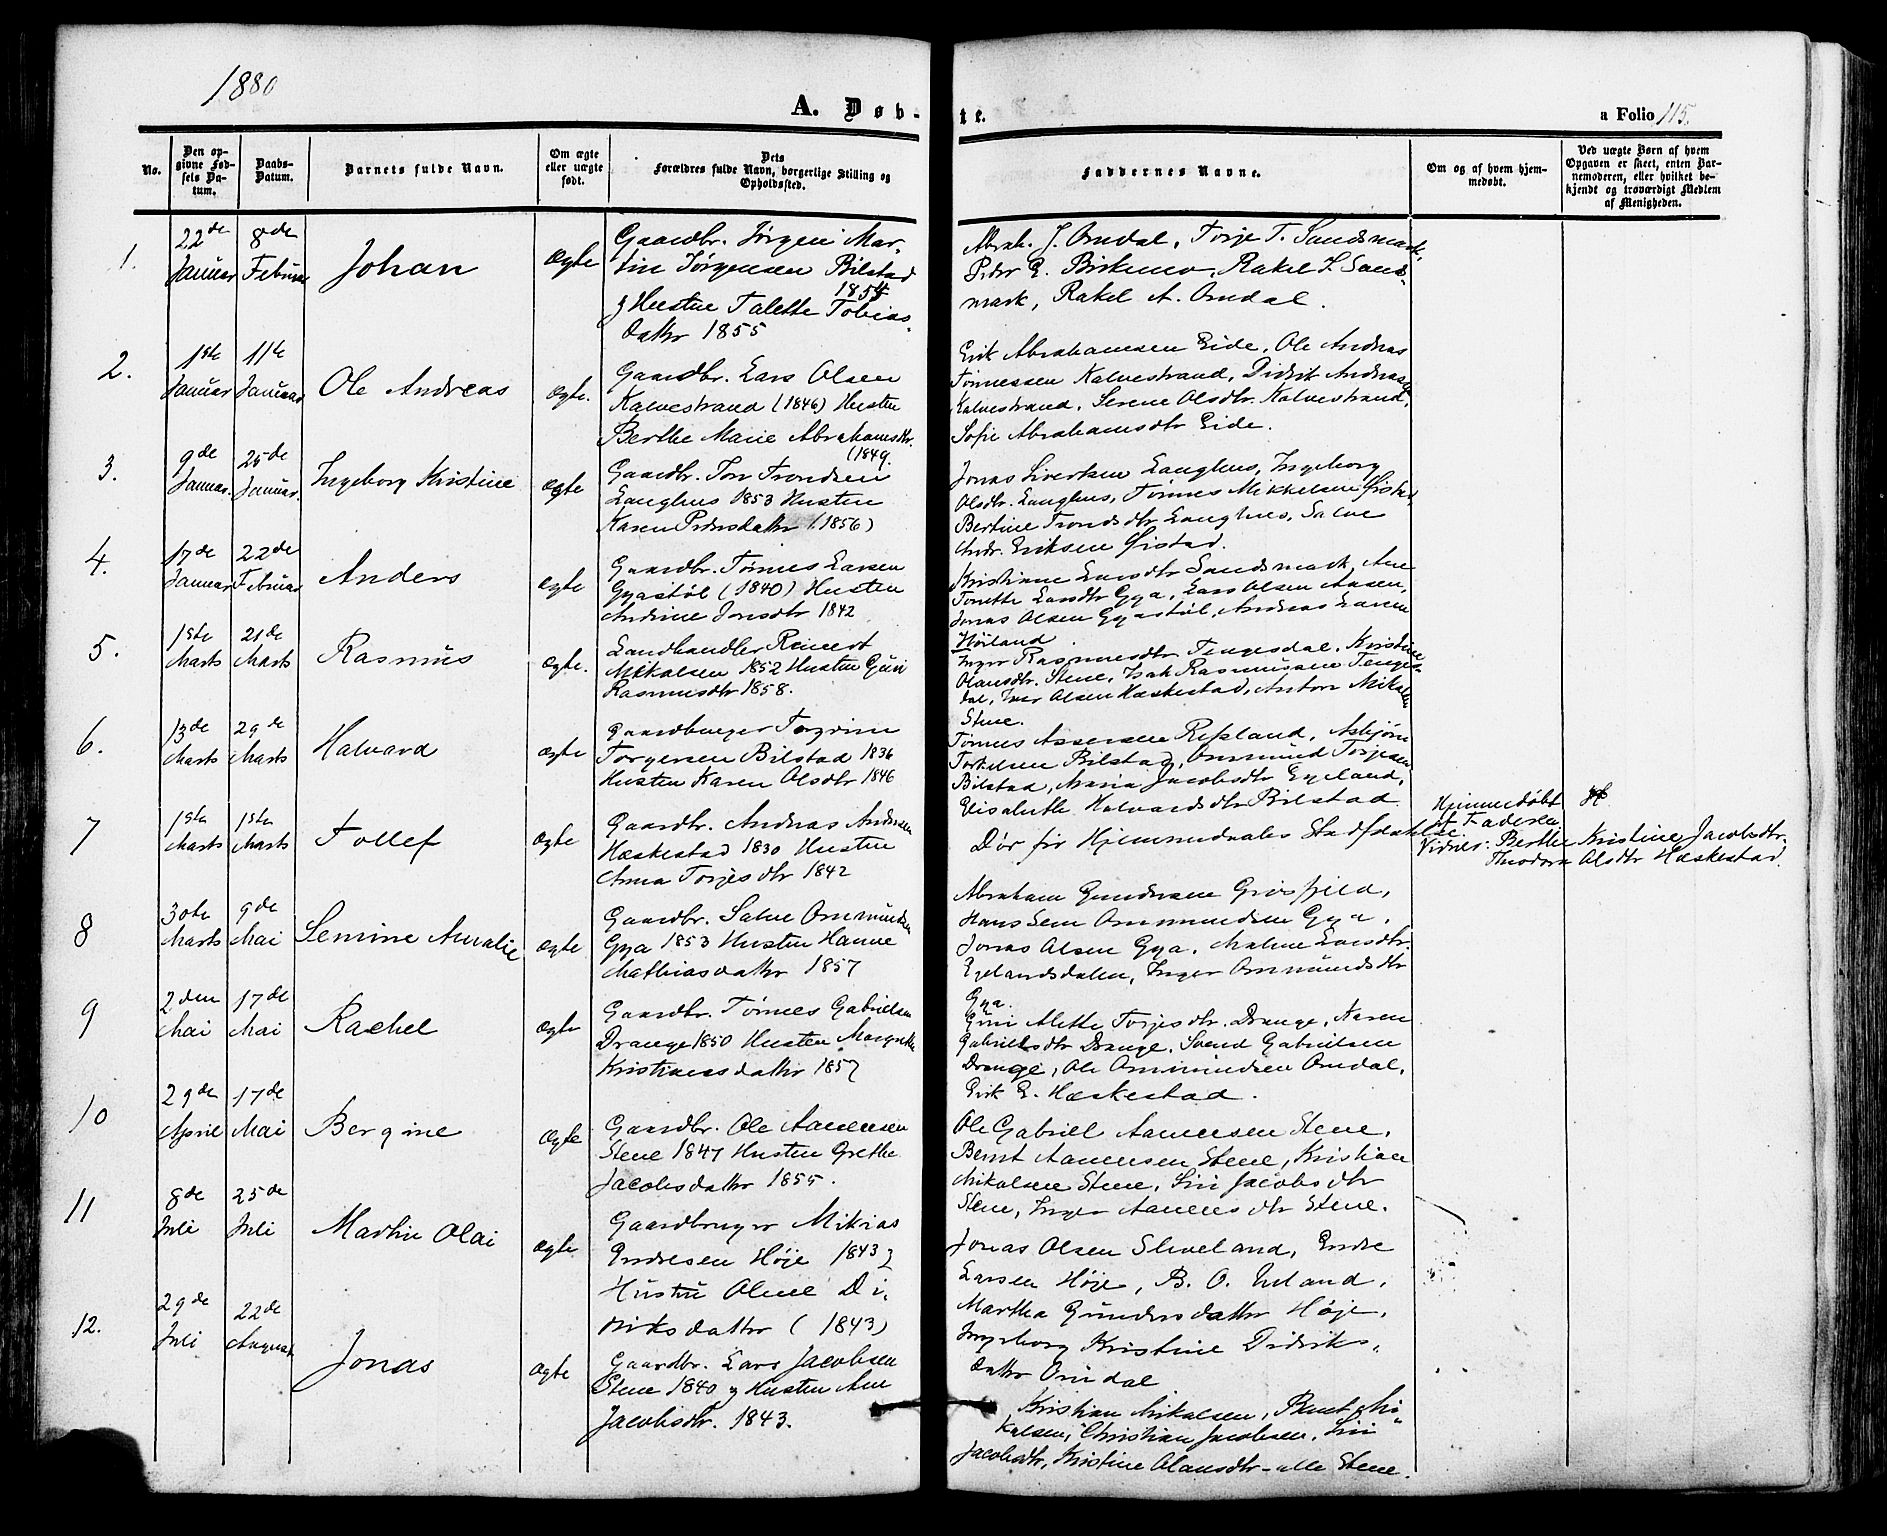 1880
A. Døb-
te.
a Folio 115.
No.
Den op-
givne Fød-
sels Da-
tum.
Daabs-
Datum.
Barnets fulde Navn.
Om ægte
eller uægte
født.
Dets
Forældres fulde Navn, borgerlige Stilling og
Opholdssted.
Faddernes Navne.
Om og af hvem hjem-
medøbt.
Ved uægte Børn af hvem
Opgaven er skeet, enten Bar-
nemoderen, eller hvilket be-
kjendt og troværdigt Medlem
af Menigheden.
1.
22de
Januar
8de
Februar
Johan
Ægte
Gaardbr. Jørgen Mar-
tin Jørgensen Bilstad
1854
g Hustru Talette Tobias-
datter 1855
Abrah. J. Omdal, Torje T. Sandsmark,
Peder E. Birkemo, Rakel T. Sands-
mark, Rakel A. Omdal.
2.
1ste
Januar
11te
Januar
Ole Andreas
Ægte.
Gaardbr. Lars Olsen
Kalvestrand (1846) Hustru
Berthe Marie Abrahamsdtr.
(1849.
Erik Abrahamsen Eide, Ole Andreas
Tønnessen Kalvestrand, Didrik Andreas
Kalvestrand, Serene Olsdtr. Kalvestrand,
Sofie Abrahamsdtr Eide.
3.
9de
Januar.
25de
Januar.
Ingeborg Kristine
Ægte
Gaardbr. Tron Trondsen
Langhus 1853 Hustru
Karen Pedersdatter (1856)
Jonas Sivertsen Langhus, Ingeborg
Olsdtr. Langhus, Tønnes Mikkelsen Øistad,
Bertine Trondsdtr Langhus, Salve
Andr. Eriksen Øistad.
4.
17de
Januar
22de
Februar
Anders
Ægte
Gaardbr. Tønnes Larsen
Gyastøl (1840) Hustru
Andrine Jonsdtr 1842
Kristiane Larsdtr Sandsmark, Ane
Tonette Larsdtr Gya, Lars Olsen Aasen,
Jonas Olsen Gyastøl, Andreas Larsen
Høiland.
5.
1ste
Marts
21de
Marts
Rasmus
Ægte.
Landhandler Reinert
Mikalsen 1852 Hustru Guri
Rasmusdtr 1858.
Inger Rasmusdtr Tengesdal, Kristine
Olausdtr. Stene, Isak Rasmussen Tenges-
dal, Iver Olsen Hæskestad, Anton Mikalsen
Stene.
6.
13de
Marts
29de
Marts
Halvard
Ægte
Gaardbruger Torgrim
Torgersen Bilstad 1836
Hustru Karen Olsdtr 1846
Tønnes Assersen Refsland, Asbjørn
Torkelsen Bilstad, Ommund Torjesen
Bilstad, Maria Jacobsdtr Eyeland,
Elisabeth Halvardsdtr Bilstad
7
1ste
Marts
1ste
Marts
Tollef
Ægte
Gaardbr. Andreas Andersen
Hæskestad 1830 Hustru
Anna Torjesdtr 1842
Død før Hjemmedaabs Stadfæstelse.
Hjemmedøbt
af Faderen
Vidner: Berthe Kristine Jacobsdtr.
Theodora Olsdtr Hæskestad.
8
30te
Marts
9de
Mai
Semine Amalie
Ægte
Gaardbr. Salve Ommundsen
Gya 1853 Hustru Hanne
Mathiasdatter 1857
Abraham Gundersen Grøsfjeld,
Hans Sem Ommundsen Gya,
Jonas Olsen Gya, Malene Larsdtr.
Eyelandsdalen, Inger Ommundsdtr
Gya.
9
2den
Mai
17de
Mai
Rachel
Ægte
Gaardbr. Tønnes Gabrielsen
Drange 1850 Hustru Margrethe
Kristiansdatter 1857
Guri Alette Torjesdtr. Drange, Karen
Gabrielsdtr Drange, Svend Gabrielsen
Drange, Ole Ommundsen Omdal,
Erik E. Hæskestad.
10
29de
April
17de
Mai
Bergine
Ægte
Gaardbr. Ole Aanensen
Stene 1847 Hustru Grethe
Jacobsdatter 1855.
Ole Gabriel Aanensen Stene,
Bernt Aanensen Stene, Kristian
Mikalsen Stene, Siri Jacobsdtr
Stene, Inger Aanensdtr Stene.
11
8de
Juli
25de
Juli
Martin Olai
Ægte
Gaardbruger Mikias
Endresen Høje 1843
Hustru Oline Di-
driksdatter (1843)
Jonas Olsen Sliveland, Endre
Larsen Høje, B. O. Urland,
Martha Gundersdatter Høje,
Ingeborg Kristine Didriks-
datter Omdal
12.
29de
Juli
22de
August
Jonas
Ægte
Gaardbr. Lars Jacobsen
Stene 1840 g Hustru Ane
Jacobsdtr. 1843.
Kristian Mikalsen, Bernt Mi-
kalsen, Christian Jacobsen, Siri
Jacobsdtr, Kristine Olausdtr - alle Stene.